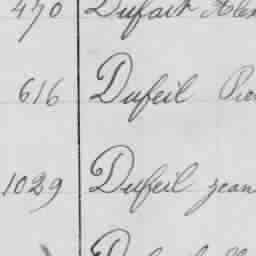 470 Dufart Alex
616 Dufeil
1029 Dufeil jean